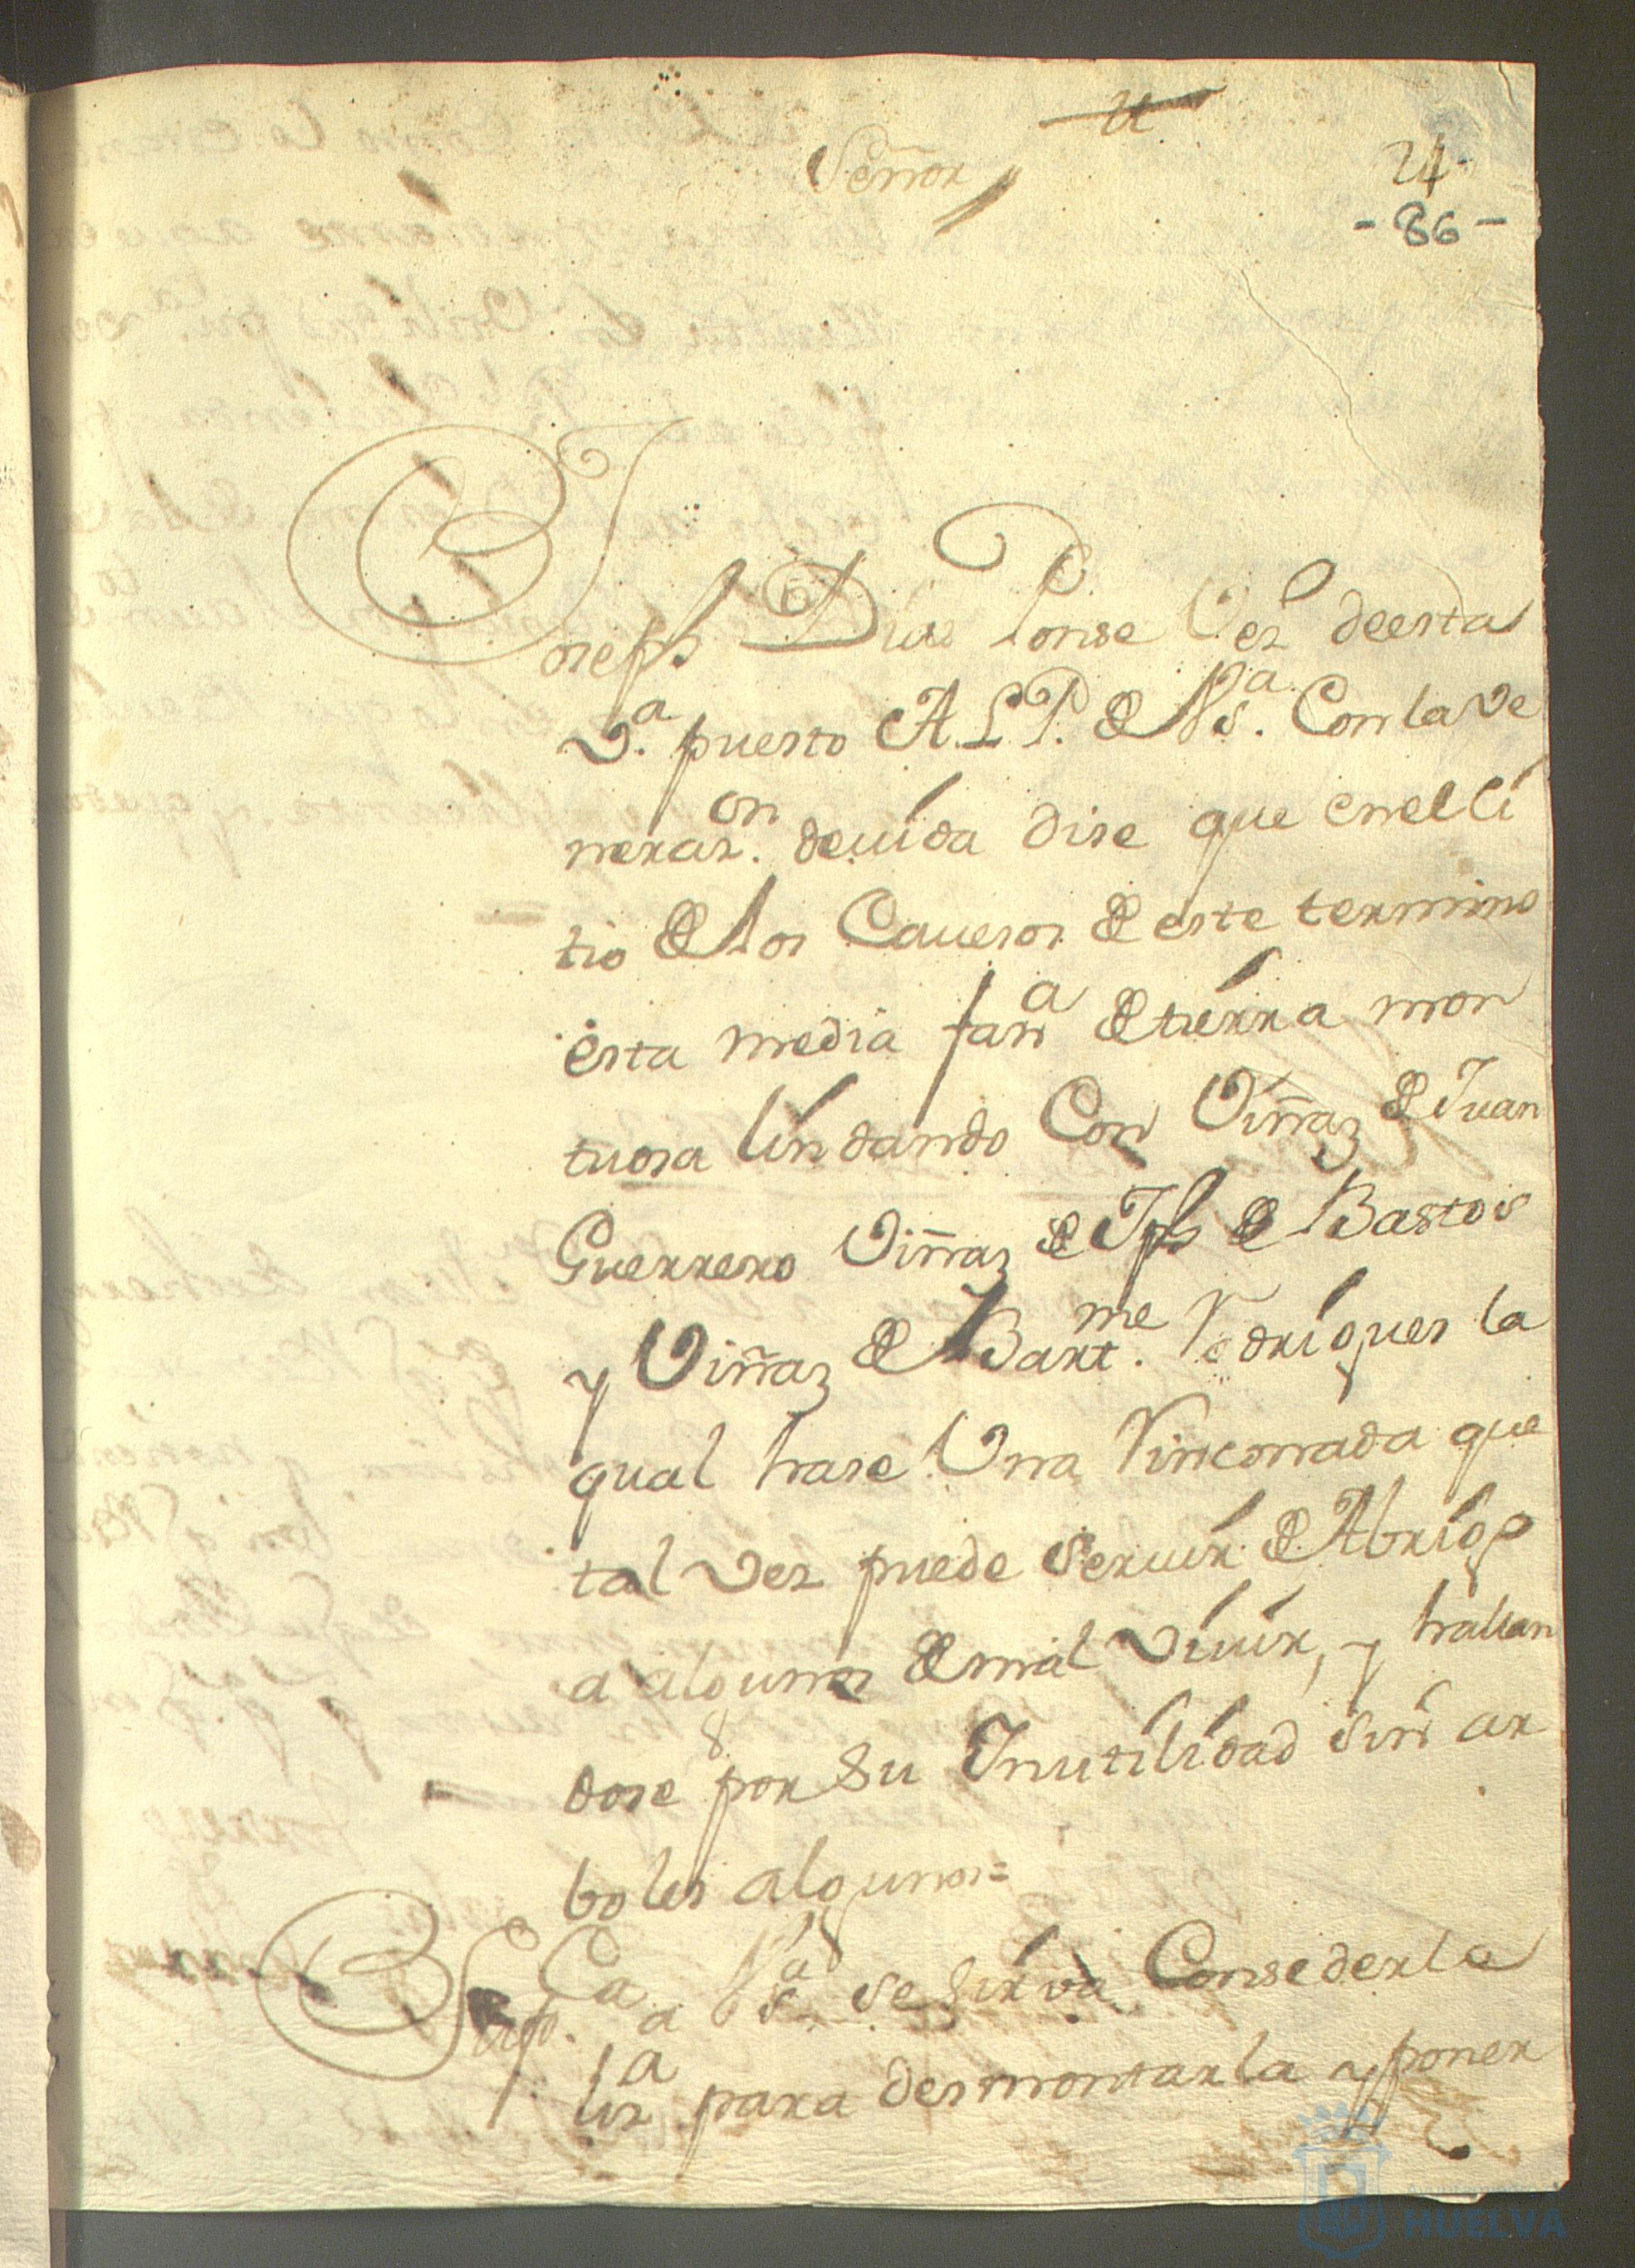 Señor
24
- 86 -
Joseph Dias Ponse Vez.º de esta
V.ª puesto A. L. P. de V.S.ª Con la ve
neraz.on deuida dise que en el si
tio de los Caueros de este termino
esta media fan.a de tierra mon
tuosa lindando Con Viñas de Juan
Guerrero Viñas de Jph de Bastos
y Viñas de Bart.me Rodrigues la
qual hase Una Rinconada que
tal vez puede seruir de Abrigo
a algunos de mal viuir, y hallan
dose por su Inutilidad sin ar
boles algunos=
Sup.ca a V.S.ª se sirva Consederle
liz.a para desmontarla y poner
HUELVA